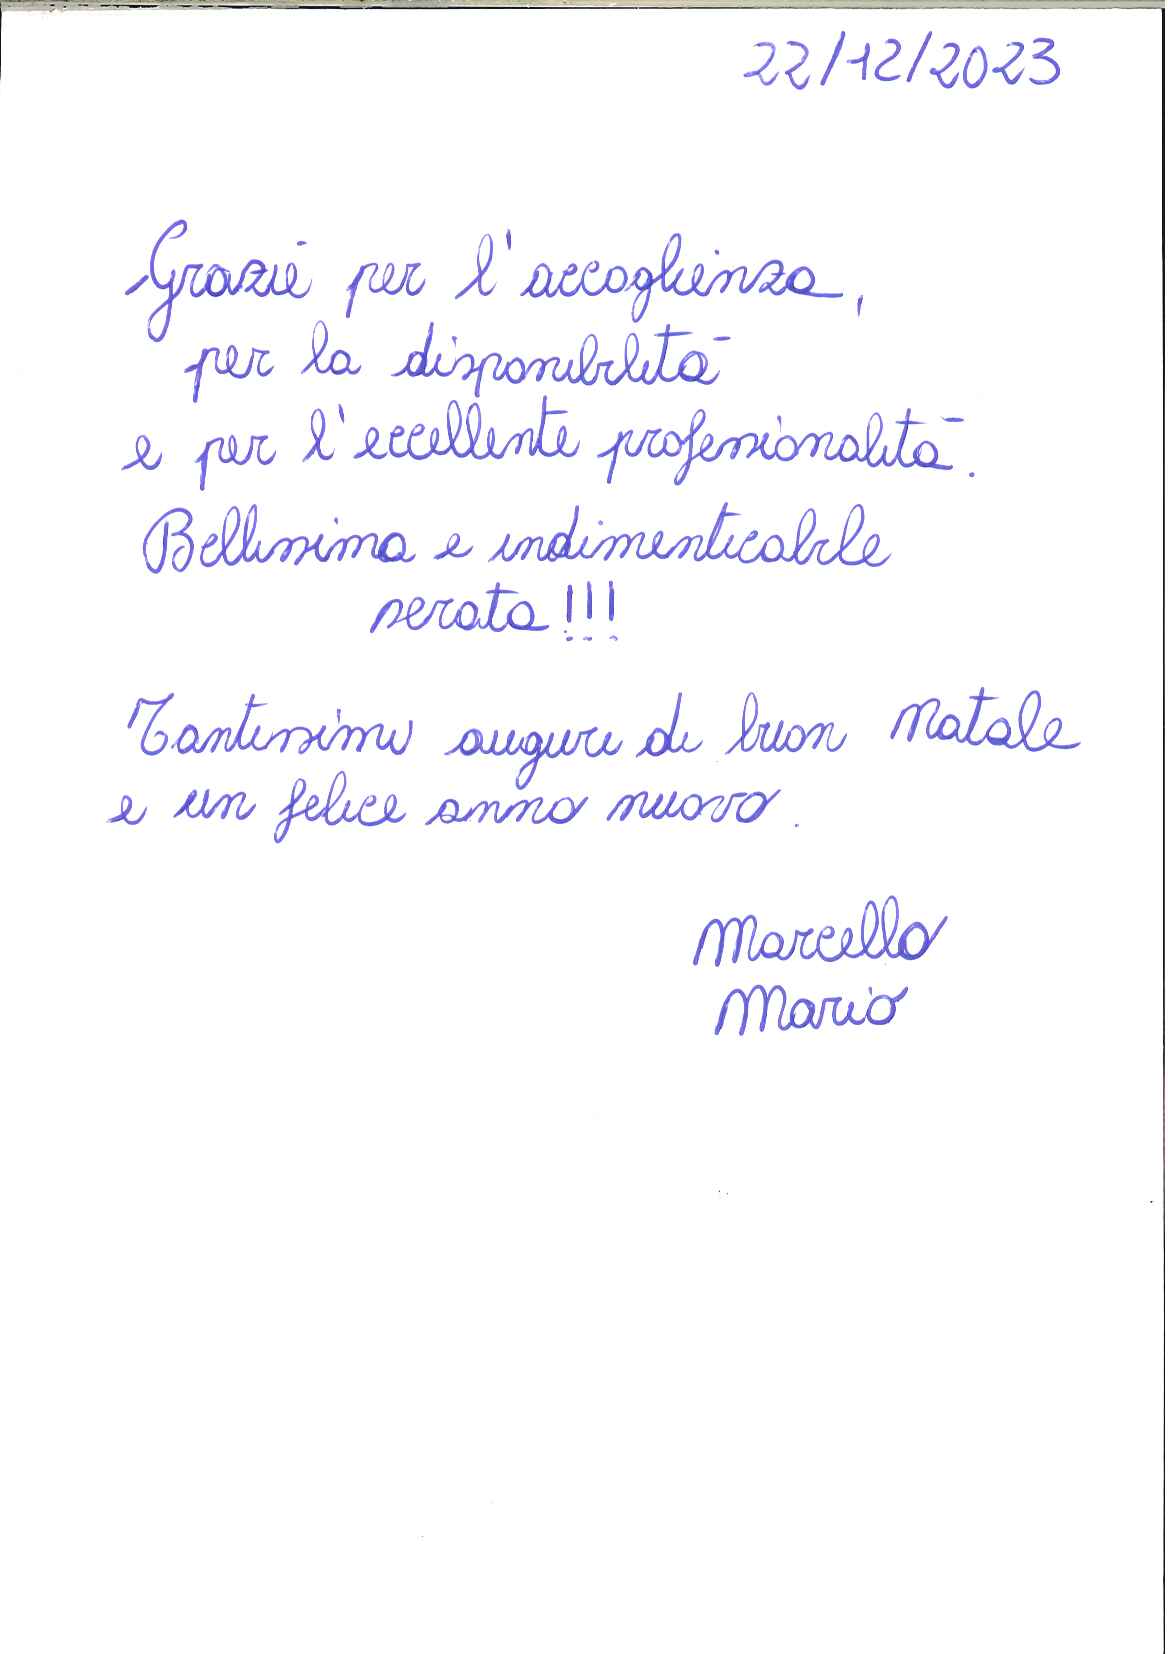 22/12/2023
Grazie per l'accoglienza,
per la disponibilità
e per l'eccellente professionalità.
Bellissima e indimenticabile
serata!!!
Tantissimi auguri di buon Natale
e un felice anno nuovo.
Marcello
Mario